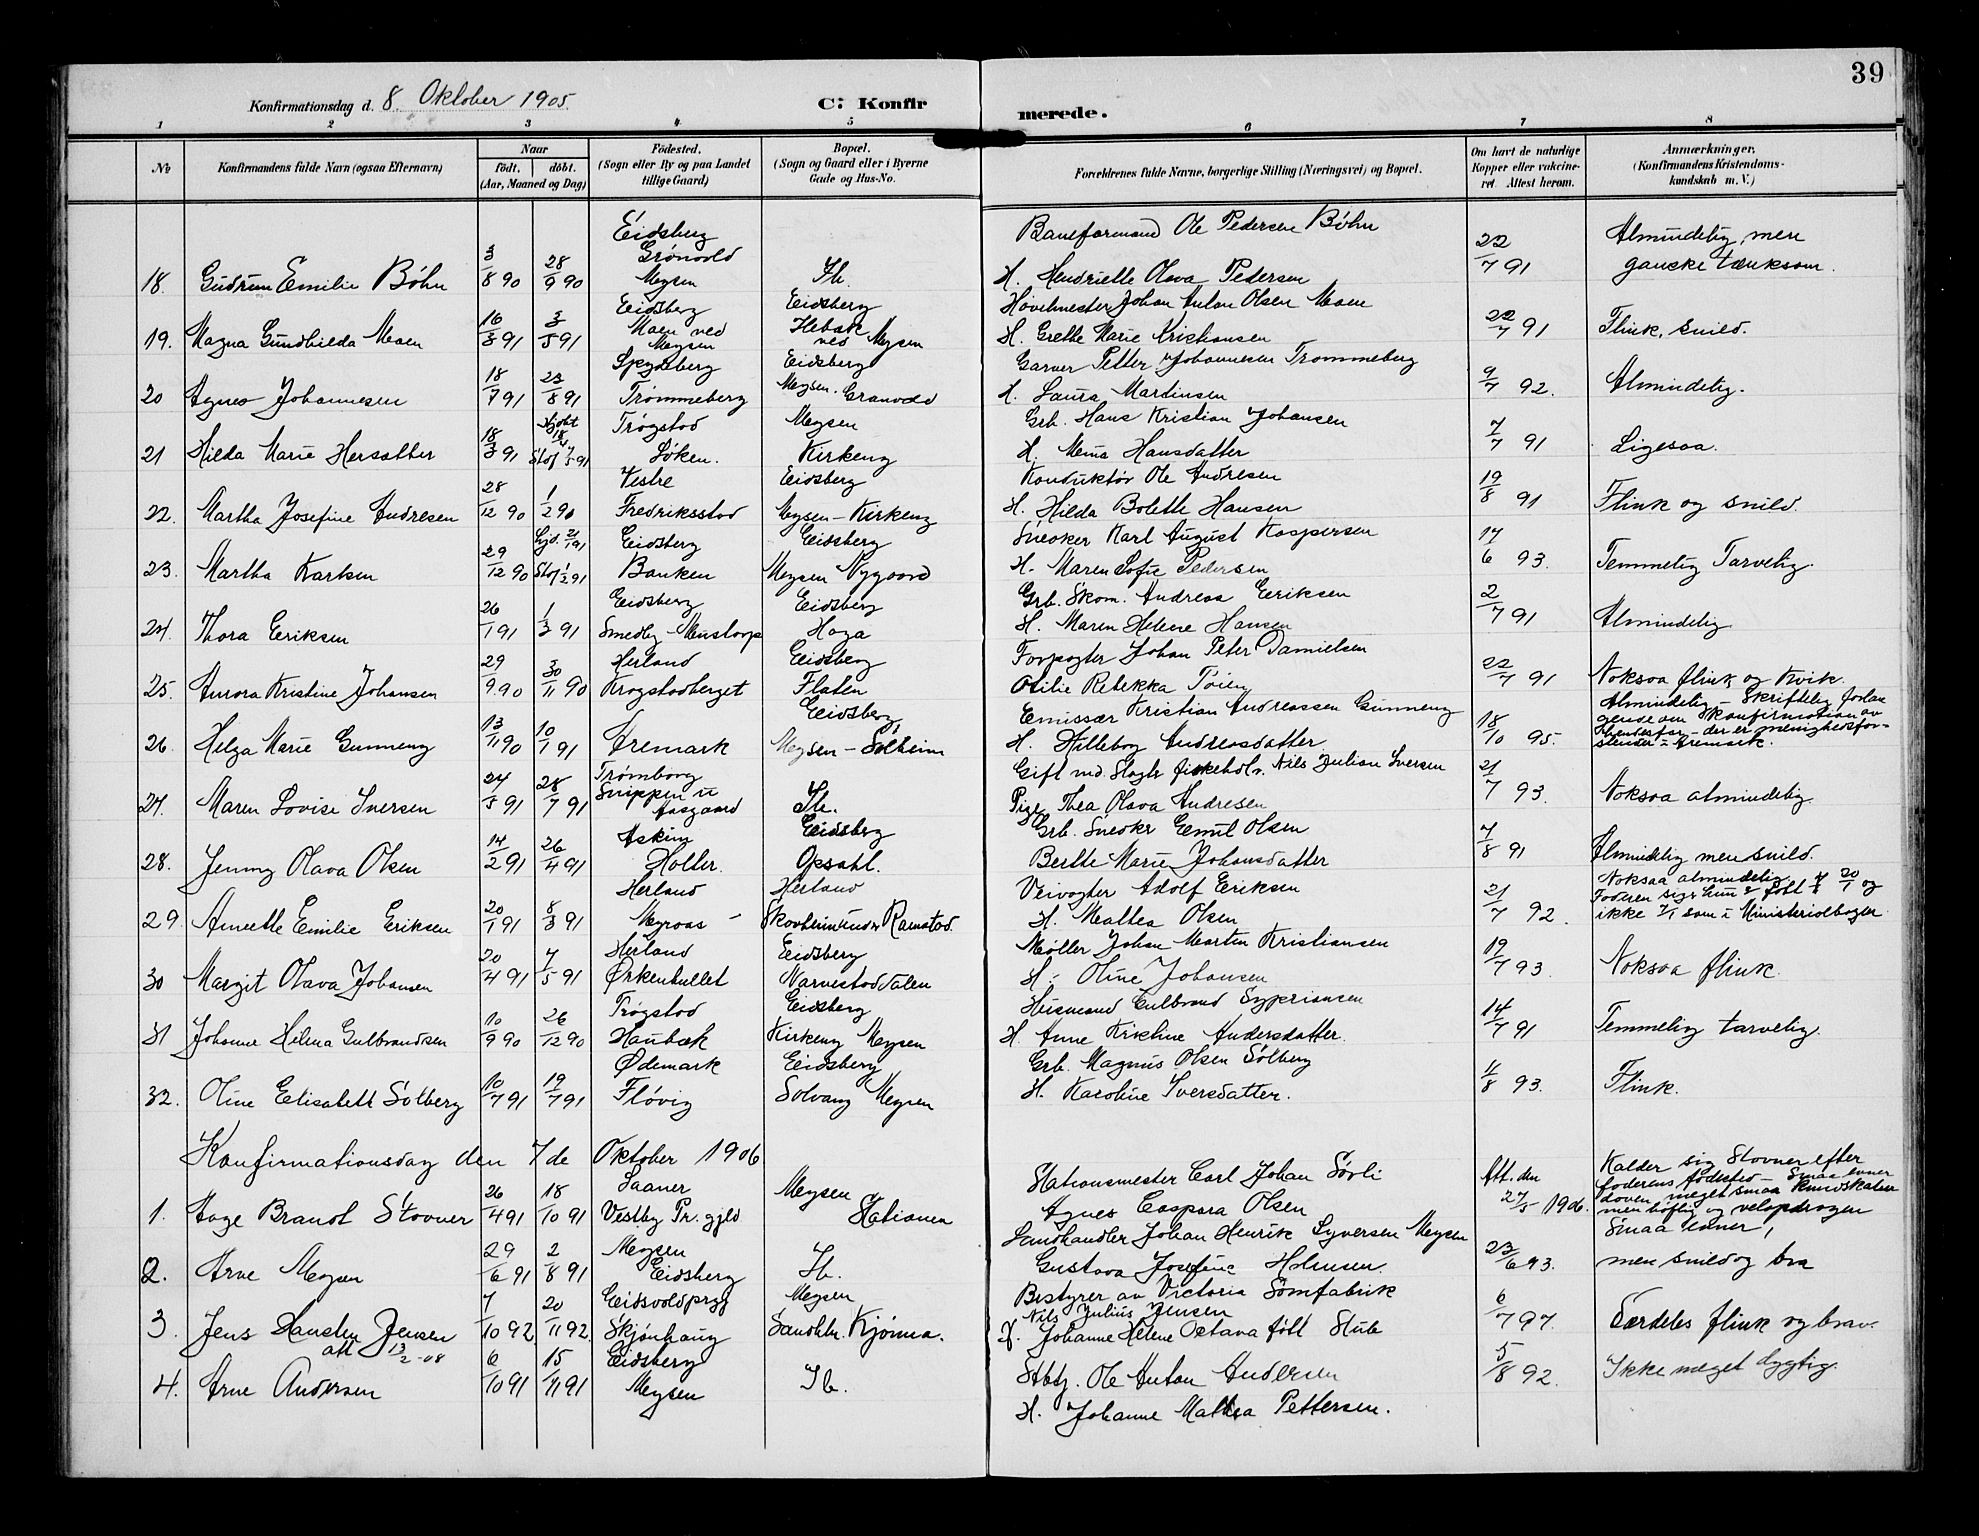 39
Konfirmationsdag d. 8. Oktober 1905
C: Konfirmerede.
1 2 3 4 5 6 7 8
No
Konfirmandens fulde Navn (ogsaa Efternavn)
Naar
født. døbt.
(Aar, Maaned og Dag)
Fødested.
(Sogn eller By og paa Landet
tillige Gaard)
Bopæl.
(Sogn og Gaard eller i Byerne
Gade og Hus-No.
Forældrenes fulde Navne, borgerlige Stilling (Næringsvei) og Bopæl.
Om havt de naturlige
Kopper eller vakcine-
ret. Attest herom.
Anmærkninger.
(Konfirmandens Kristendoms-
kundskab m. V.)
Eidsberg Baneformand Ole Pedersen Bøhn Almindelig, men
18. Gudrun Emilie Bøhn 3/8 90 28/9 90 Grønvold Mysen Ib. H. Henriette Olava Pedersen 22/7 91 ganske tænksom.
Eidsberg Eidsberg Høvelmester Johan Anton Olsen Moen
19. Magna Gundhilda Moen 16/3 91 3/5 91 Moen ved Mysen ved Mysen H. Grethe Marie Kristiansen 22/7 91 Flink, snild.
Spydeberg Eidsberg Garver Petter Johannesen Trømmeberg
20 Agnes Johannesen 18/7 91 23/8 91 Trømmeberg Mysen. Granvold H. Laura Martinsen 9/7 92. Almindelig.
Trøgstad Mysen Grb. Hans Kristian Johansen
21 Hilda Marie Hersætter 18/3 91 Hjdøbt 18/4 Stof 7/5 91 Løken. Kirkeng H. Mina Hansdatter 7/7 91 Ligesaa.
Vestre Eidsberg Konduktør Ole Andresen
22. Martha Josefine Andresen 28/12 90 1/2 90 Fredriksstad Mysen - Kirkeng H. Hilda Bolette Hansen 19/8 91 Flink og snild.
Eidsberg Eidsberg Snedker Karl August Kaspersen
23. Martha Karlsen 29/12 90 Stof 1/3 91 Banken Mysen Nygaard H. Maren Sofie Pedersen 14/6 93. Temmelig Tarvelig.
Eidsberg Eidsberg Grb. Skom. Andreas Eriksen
24. Thora Eriksen 26/1 91 1/3 91 Smedby - Mustorp Haga H. Maren Helene Hansen 2/7 91 Almindelig
Herland Eidsberg Forpagter Johan Peter Danielsen
25. Aurora Kristine Johansen 29/9.90 30/11 90 Krogstadberget Flaten Otilie Rebekka Tøien 22/7 91 Noksaa flink og kvik.
Eidsberg Emissær Kristian Andreassen Gunneng Almindelig - Skriftelig forlan
gende om Konfirmation av
26. Helga Marie Gunneng 13/11 90 10/1 91 Aremark Mysen - Solheim H. Hilleborg Andreasdatter 18/10 95. hendes far - der er menighedsfor-
stander i Aremark.
Trømborg Gift md. Slagter fiskehdlr. Nils Julian Iversen
27. Maren Lovise Iversen 24/5 91 28/7 91 Snippen u Aasgaard Ib. Pige Thea Olava Andresen 21/7 93. Noksaa almindelig.
Askim Eidsberg Grb. Snedkr Emil Olsen
28. Jenny Olava Olsen 14/2 91 26/4 91 Holter. Opsahl. Berthe Marie Johansdatter 7/8 91 Almindelig men snild.
Herland Herland Veivogter Adolf Eriksen Noksaa almindelig.
Faderen siger hun er født 20/1 og
29. Annethe Emilie Eriksen 20/1 91 8/3 91 Myraas - Skovheim under Ramstad. H. Mathea Olsen 21/7 92. ikke 7/1 som i Ministerialbogen
Herland Eidsberg Møller Johan Martin Kristiansen
30 Margit Olava Johansen 20/4 91 7/5 91 Ørkenhullet Narvestaddalen H. Oline Johansen 19/7 93. Noksaa flink.
Trøgstad Eidsberg Husmand Gulbrand Sypriansen
31 Johanne Helena Gulbrandsen 10/9 90 26/12 90 Haubæk Kirkeng Mysen H. Anne Kristine Andersdatter. 14/7 91 Temmelig tarvelig.
Ødemark Eidsberg Grb. Magnus Olsen Solberg
32. Oline Elisabeth Solberg 10/7 91 19/7 91 Fløvig Solvang Mysen H. Karoline Iversdatter. 4/8 93. Flink.
Konfirmationsdag den 7de Oktober 1906
Saaner Mysen Stationsmester Carl Johan Sørli Att. den Kalder sig Stovner efter
faderens fødested - Smaa evner
doven, meget smaa kundskaber
1. Aage Brandt Stovner 26/4 91 18/10 91 Vestby Pr. gjld Stationen Agnes Caspara Olsen 27/5 1906. men høflig og velopdragen
Mysen Landhandler Johan Henrik Syversen Mysen Smaa evner,
2. Arne Mysen 29/6 91 2/8 91 Eidsberg Ib. Gustava Josefine Holmsen. 23/6 93. men snild og bra
Eidsvoldprgj Mysen Bestyrer av Victoria Sømfabrik
Nils Julius Jensen
3. Jens Hansten Jensen 7/10 92 20/11 92. Skjønhaug Landhdr. Kjønna. H. Johanne Helene Octava født Stub 6/7 97. Særdeles flink og brav.
att 13/2-08
Eidsberg Stbtj. Ole Anton Andersen
4. Arne Andersen 6/10 91 15/11 91 Mysen Ib. H. Johanne Mathea Pettersen. 5/8 92. Ikke meget dygtig.